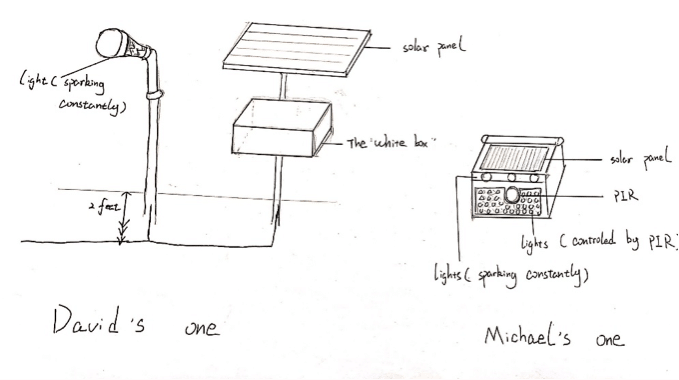 solar panel
Light ( sparking
constantly)
The "white box"
2 feet
David's one
solar panel
PIR
lights ( controled by PIR)
lights ( sparking constantly)
Michael's one